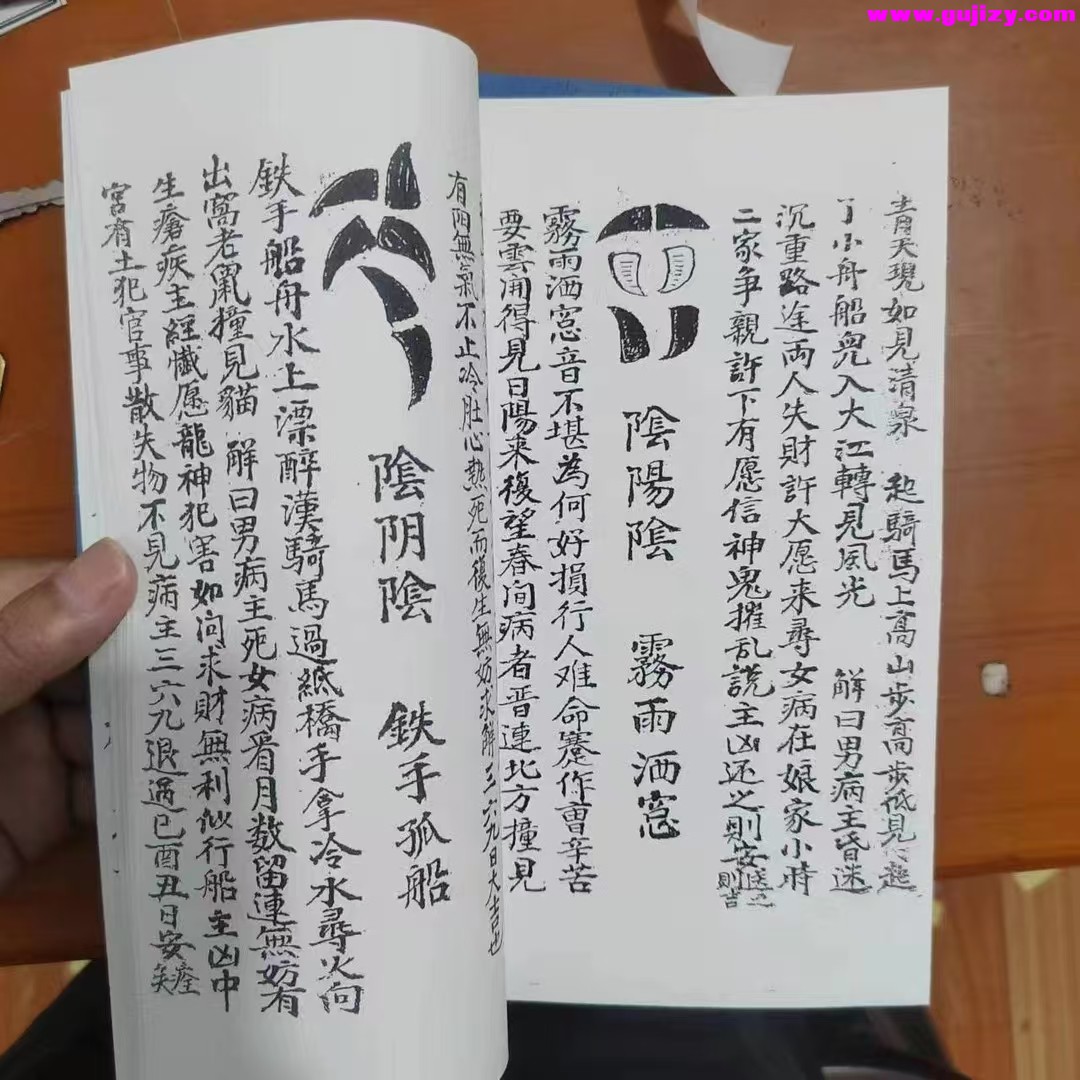 www.gujizy.com
青天現如見清泉 起騎馬上高山步高步低見
了小舟船兜入大江轉見風光 解曰男病主昏迷
沉重路途両人失財許大愿来尋女病在娘家小時
二家争親許下有愿信神鬼摧乱説主凶还之則安送之則吉
陰陽陰 霧雨洒窓
霧雨洒窓音不堪為何好損行人难命蹇作曹辛苦
要雲開得見日陽来復望春间病者晋連北方撞見
有阳無氣不止冷肚心熱死而復生無妨求解三六九日大吉也
陰阴陰 鉄手孤船
鉄手船舟水上漂醉漢騎馬過紙橋手拿冷水尋火向
出窩老鼠撞見貓 解曰男病主死女病看月数留連無妨有
生瘡疾主經懺愿龍神犯害如问求財無利似行船主凶中
宫有土犯官事散失物不見病主三六九退遇巳酉丑日安痊矣